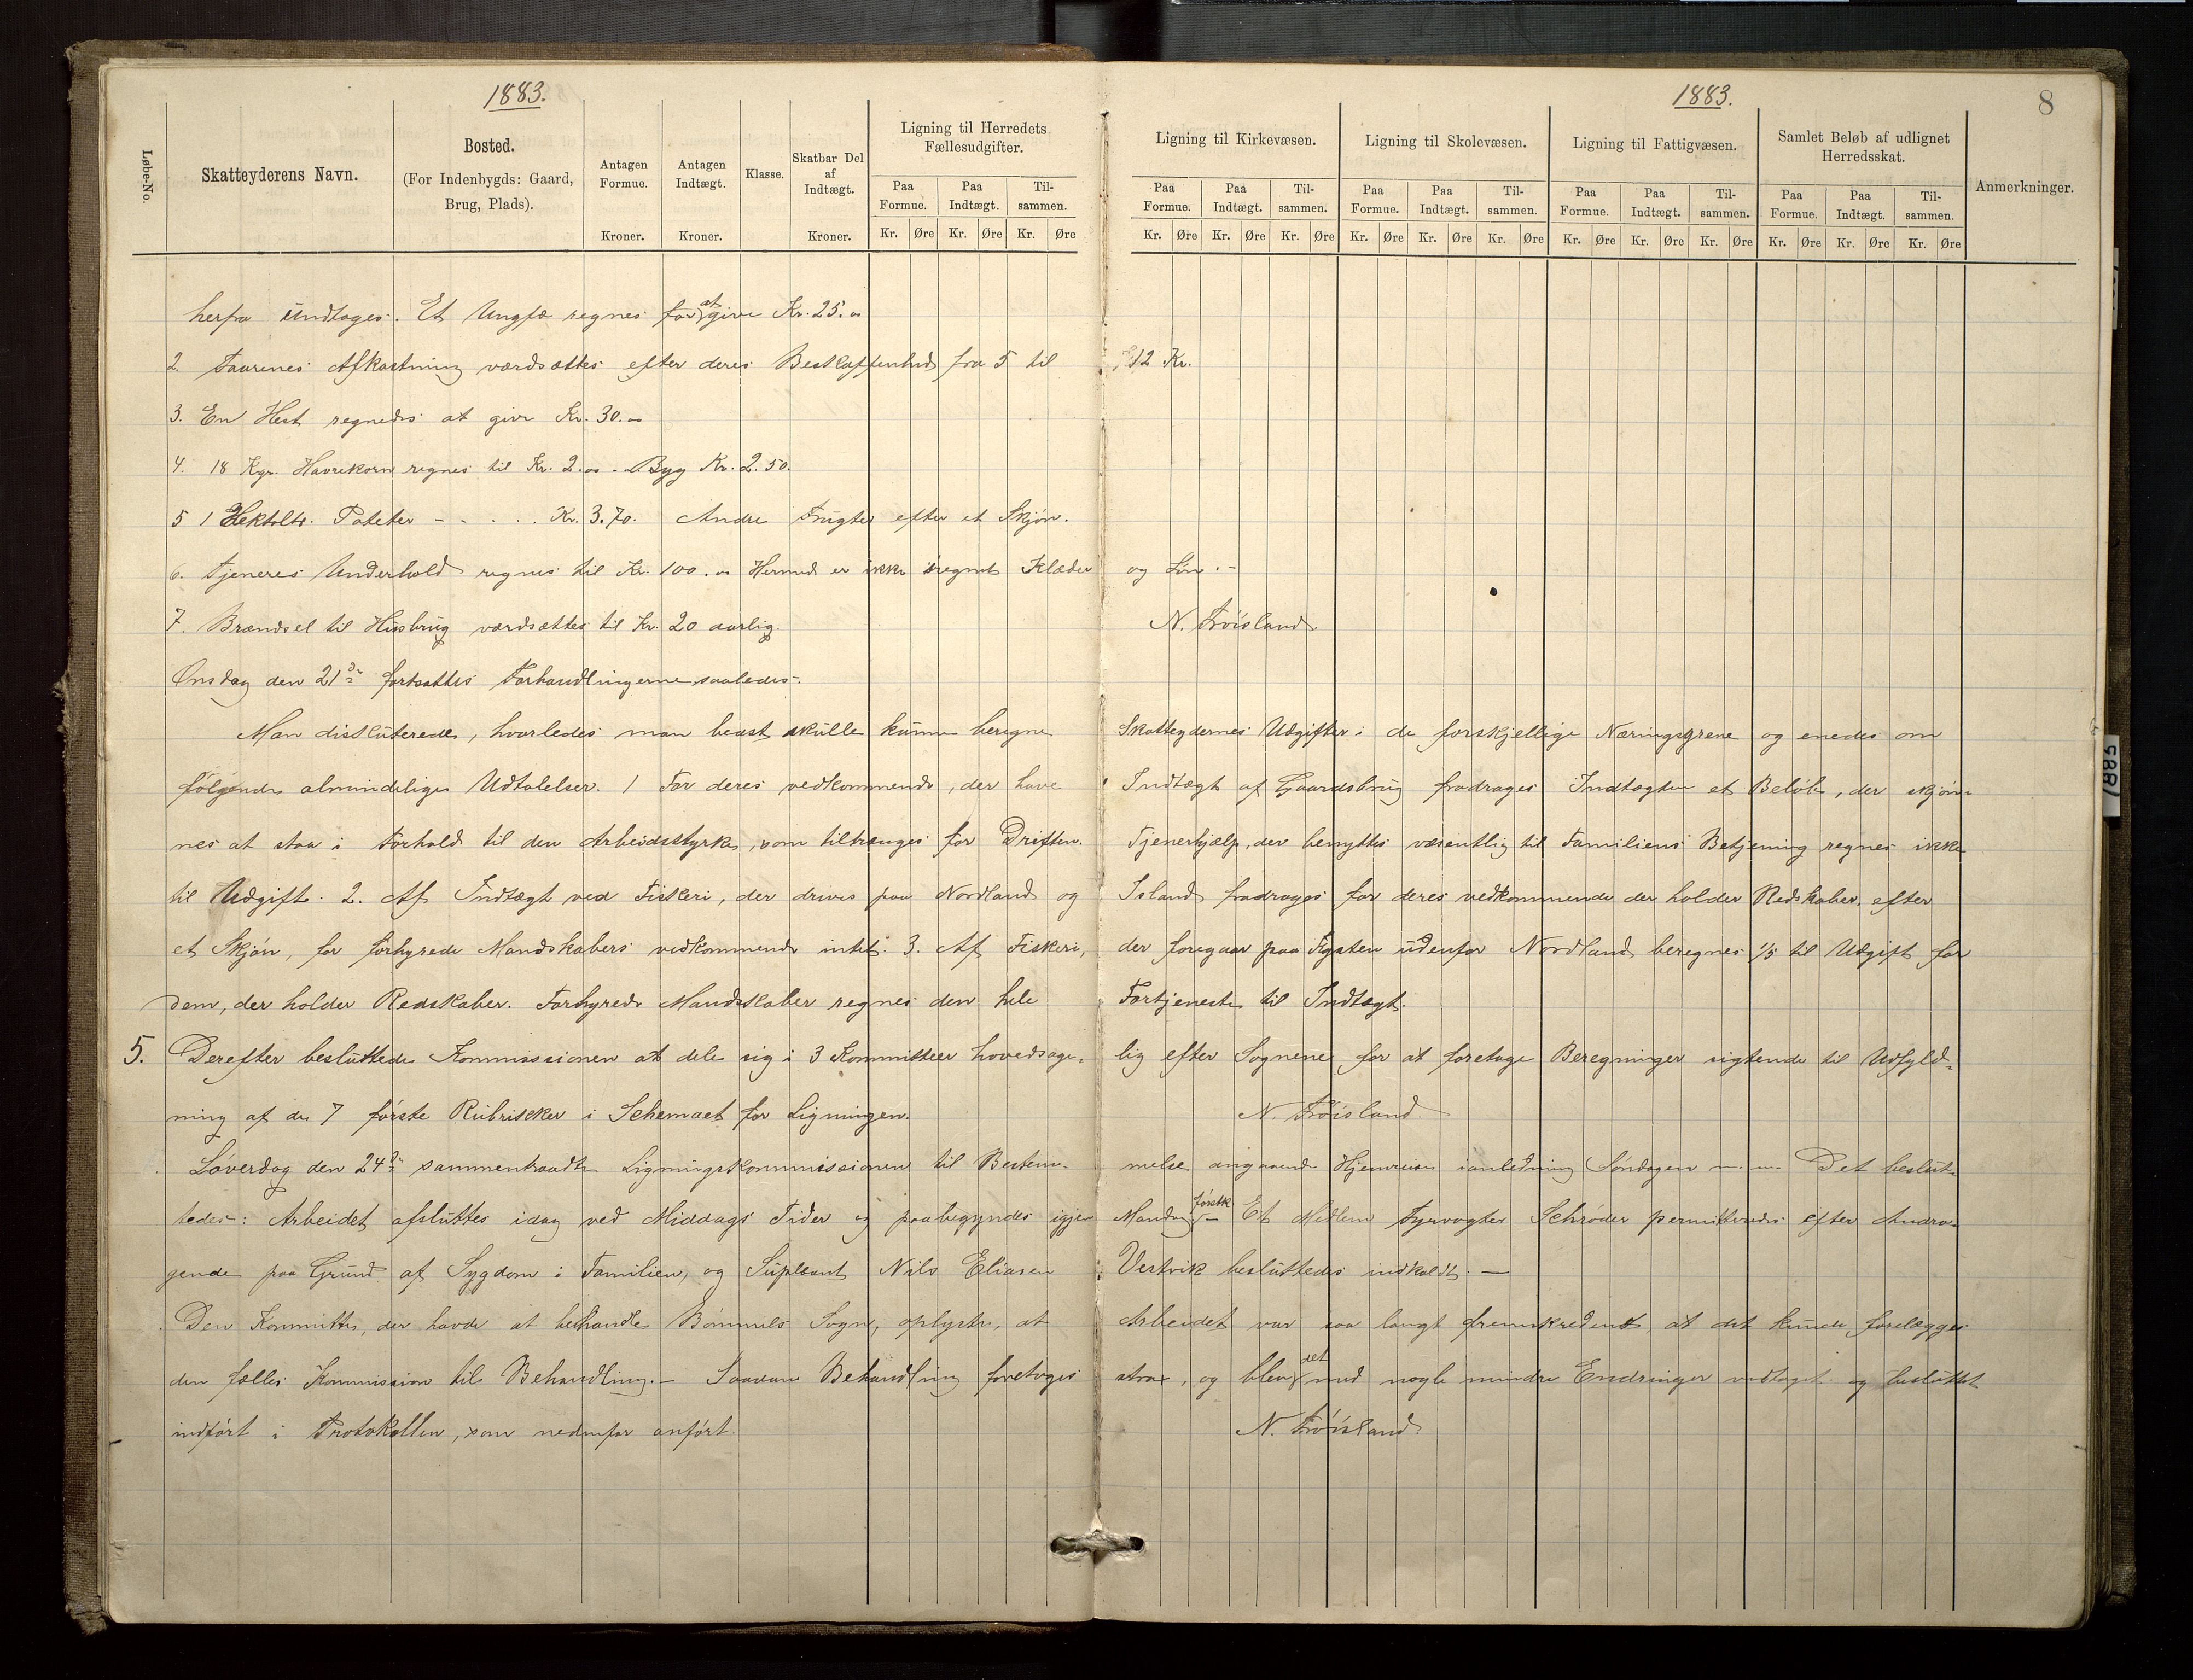 1883.
1883.
8
Løbe-No.
Skatteyderens Navn.
Bosted.
(For Indenbygds: Gaard,
Brug, Plads).
Antagen
Formue.
Kroner.
Antagen
Indtægt.
Kroner.
Klasse.
Skatbar Del
af
Indtægt.
Kroner.
Ligning til Herredets
Fællesudgifter.
Paa Formue. Paa Indtægt. Til-sammen.
Kr. Øre Kr. Øre Kr. Øre
Ligning til Kirkevæsen.
Paa Formue. Paa Indtægt. Til-sammen.
Kr. Øre Kr. Øre Kr. Øre
Ligning til Skolevæsen.
Paa Formue. Paa Indtægt. Til-sammen.
Kr. Øre Kr. Øre Kr. Øre
Ligning til Fattigvæsen.
Paa Formue. Paa Indtægt. Til-sammen.
Kr. Øre Kr. Øre Kr. Øre
Samlet Beløb af udlignet
Herredsskat.
Paa Formue. Paa Indtægt. Til-sammen.
Kr. Øre Kr. Øre Kr. Øre
Anmerkninger.
herfra undtages. Et Ungfæ regnes for at give Kr. 25.00
2 Faarenes Afkastning værdsættes efter deres Beskaffenhed fra 5 til 12 Kr.
3. En Hest regnedes at give Kr. 30.00
4. 18 Kgr. Havrekorn regnes til Kr. 2.00 - Byg Kr. 2.50.
5 1 Hektoltr. Poteter - - . . . Kr. 3.70. Andre Frugter efter et Skjøn.
6. Tjeneres Underhold regnes til Kr. 100.00 Hermed er ikke iregnet Klæder og Løn. -
7. Brændsel til Husbrug værdsættes til Kr. 20 aarlig. N. Frøisland.
Onsdag den 21de fortsattes Forhandlingerne saaledes:
Man diskuterede, hvorledes man bedst skulle kunne beregne Skatteydernes Udgifter i de forskjellige Næringsgrene og enedes om
følgende almindelige Udtalelser. 1 For deres vedkommende, der have Indtægt af Gaardsbrug fradrages Indtægten et Beløb, der skjøn-
nes at staa i Forhold til den Arbeidsstyrke, som tiltrænges for Driften. Tjenerhjælp, der benyttes væsentlig til Familiens Betjening regnes ikke
til Udgift. 2. Af Indtægt ved Fiskeri, der drives paa Nordland og Island fradrages for deres vedkommende der holder Redskaber, efter
et Skjøn, for forhyrede Mandskabers vedkommende intet. 3. Af Fiskeri, der foregaar paa Kysten udenfor Nordland beregnes 1/5 til Udgift for
dem, der holder Redskaber. Forhyrede Mandskaber regnes den hele Fortjeneste til Indtægt.
5. Derefter besluttede Kommissionen at dele sig i 3 Kommitteer hovedsage- lig efter Sognene for at foretage Beregninger sigtende til Udfyld-
ning af de 7 første Rubrikker i Schemaet for Ligningen. N. Frøisland.
Løverdag den 24de sammentraadte Ligningskommissionen til Bestem- melse angaaende Hjemreise ianledning Søndagen m. m. Det beslut-
tedes: Arbeidet afsluttes idag ved Middags Tider og paabegyndes igjen Mandag førstk. - Et Medlem Fyrvogter Schrøder permitteredes efter Andra-
gende paa Grund af Sygdom i Familien, og Supleant Nils Eliasen Vestvik besluttedes indkaldt. -
Den Kommitte, der havde at behandle Bømmelo Sogn, oplyste, at Arbeidet var saa langt fremskredent, at det kunde forelægges
den fælles Kommission til Behandling. - Saadan Behandling foretoges strax, og blev det med nogle mindre Endringer vedtaget og besluttet
indført i Protokollen, som nedenfor anført. N. Frøisland
1885